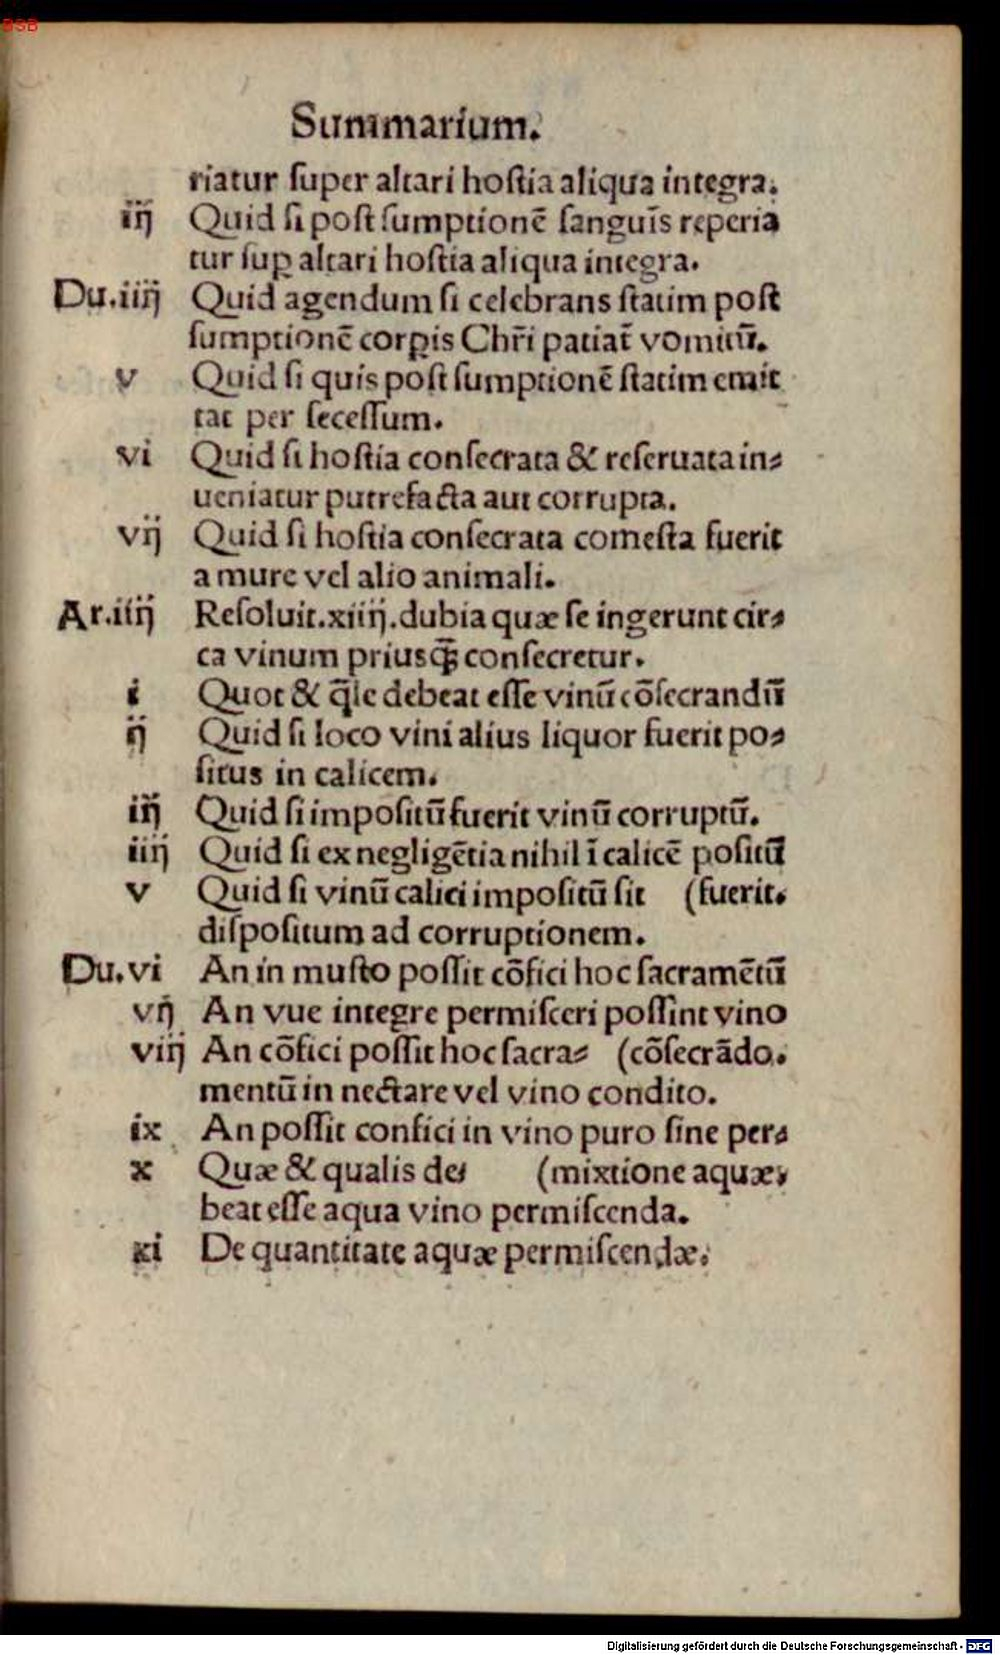 BSB
Summarium.
riatur ſuper altari hoſtia aliqua integra.
iij Quid ſi poſt ſumptionē ſanguīs reperia
tur ſuꝑ altari hoſtia aliqua integra.
Du.iiij Quid agendum ſi celebrans ſtatim poſt
ſumptionē corꝑis Chr̄i patiat̄ vomitū.
v Quid ſi quis poſt ſumptionē ſtatim emit
tat per ſeceſſum.
vi Quid ſi hoſtia conſecrata & reſeruata in⸗
ueniatur putrefacta aut corrupta.
vij Quid ſi hoſtia conſecrata comeſta fuerit
a mure vel alio animali.
Ar.iiij Reſoluit.xiiij.dubia quæ ſe ingerunt cir⸗
ca vinum priusq̄ꝫ conſecretur.
i Quot & q̄le debeat eſſe vinū cōſecrandū
ij Quid ſi loco vini alius liquor fuerit po⸗
ſitus in calicem.
iij Quid ſi impoſitū fuerit vinū corruptū.
iiij Quid ſi ex negligētia nihil ī calicē poſitū
v Quid ſi vinū calici impoſitū ſit (fuerit.
diſpoſitum ad corruptionem.
Du.vi An in muſto poſſit cōfici hoc ſacramētū
vij An vue integre permiſceri poſſint vino
viij An cōfici poſſit hoc ſacra⸗ (cōſecrādo.
mentū in nectare vel vino condito.
ix An poſſit confici in vino puro ſine per⸗
x Quæ & qualis de⸗ (mixtione aquæ.
beat eſſe aqua vino permiſcenda.
xi De quantitate aquæ permiſcendæ.
Digitalisierung gefördert durch die Deutsche Forschungsgemeinschaft - DFG